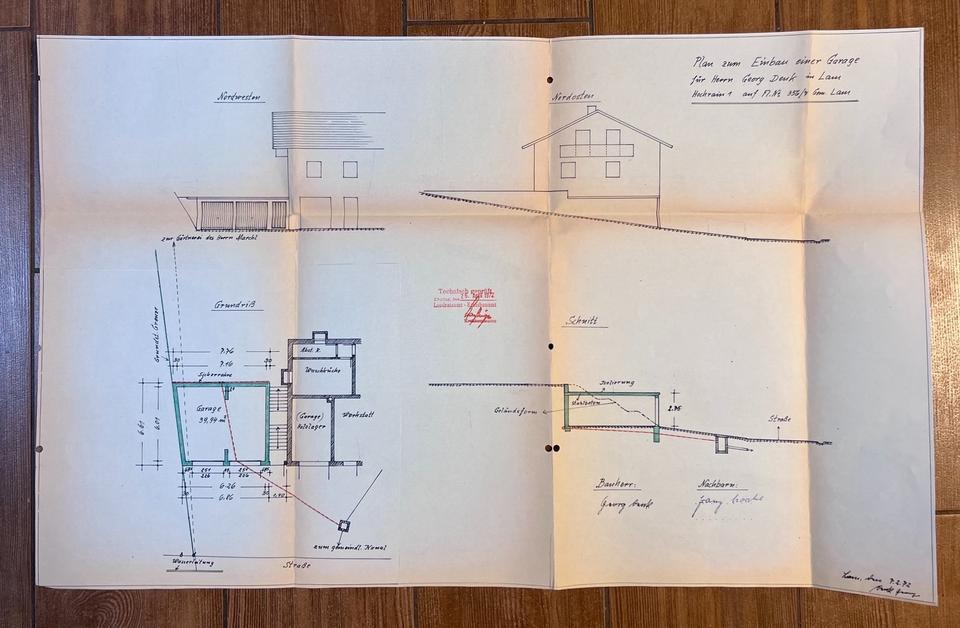 Plan zum Einbau einer Garage
für Herrn Georg Denk in Lam
Hochrain 1 auf Fl.Nº 356/7 Gem Lam
Nordwesten
Nordosten
zur Gärtnerei des Herrn Marchl
Technisch geprüft
Landratsamt
Grundriß
Grundst. Grenze
7.76
30
7.16
30
Sickerrohre
Garage
39,94 m²
6.61
6.01
Abst. R.
Waschküche
(Garage)
Holzlager
Werkstatt
6.26
6.86
30
30
zum gemeindl. Kanal
Wasserleitung
Straße
Schnitt
Isolierung
Stahlbeton
Geländeform
2.75
Straße
Bauherr:
Nachbarn:
Georg Denk
Lam, den 7.2.72